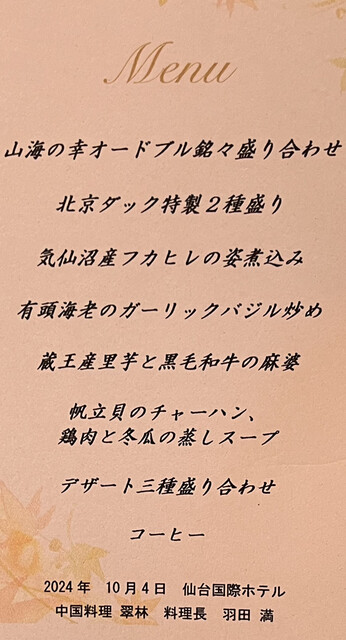 Menu
山海の幸オードブル銘々盛り合わせ
北京ダック特製２種盛り
気仙沼産フカヒレの姿煮込み
有頭海老のガーリックバジル炒め
蔵王産里芋と黒毛和牛の麻婆
帆立貝のチャーハン、
鶏肉と冬瓜の蒸しスープ
デザート三種盛り合わせ
コーヒー
2024年　10月4日　仙台国際ホテル
中国料理 翠林　料理長　羽田 満